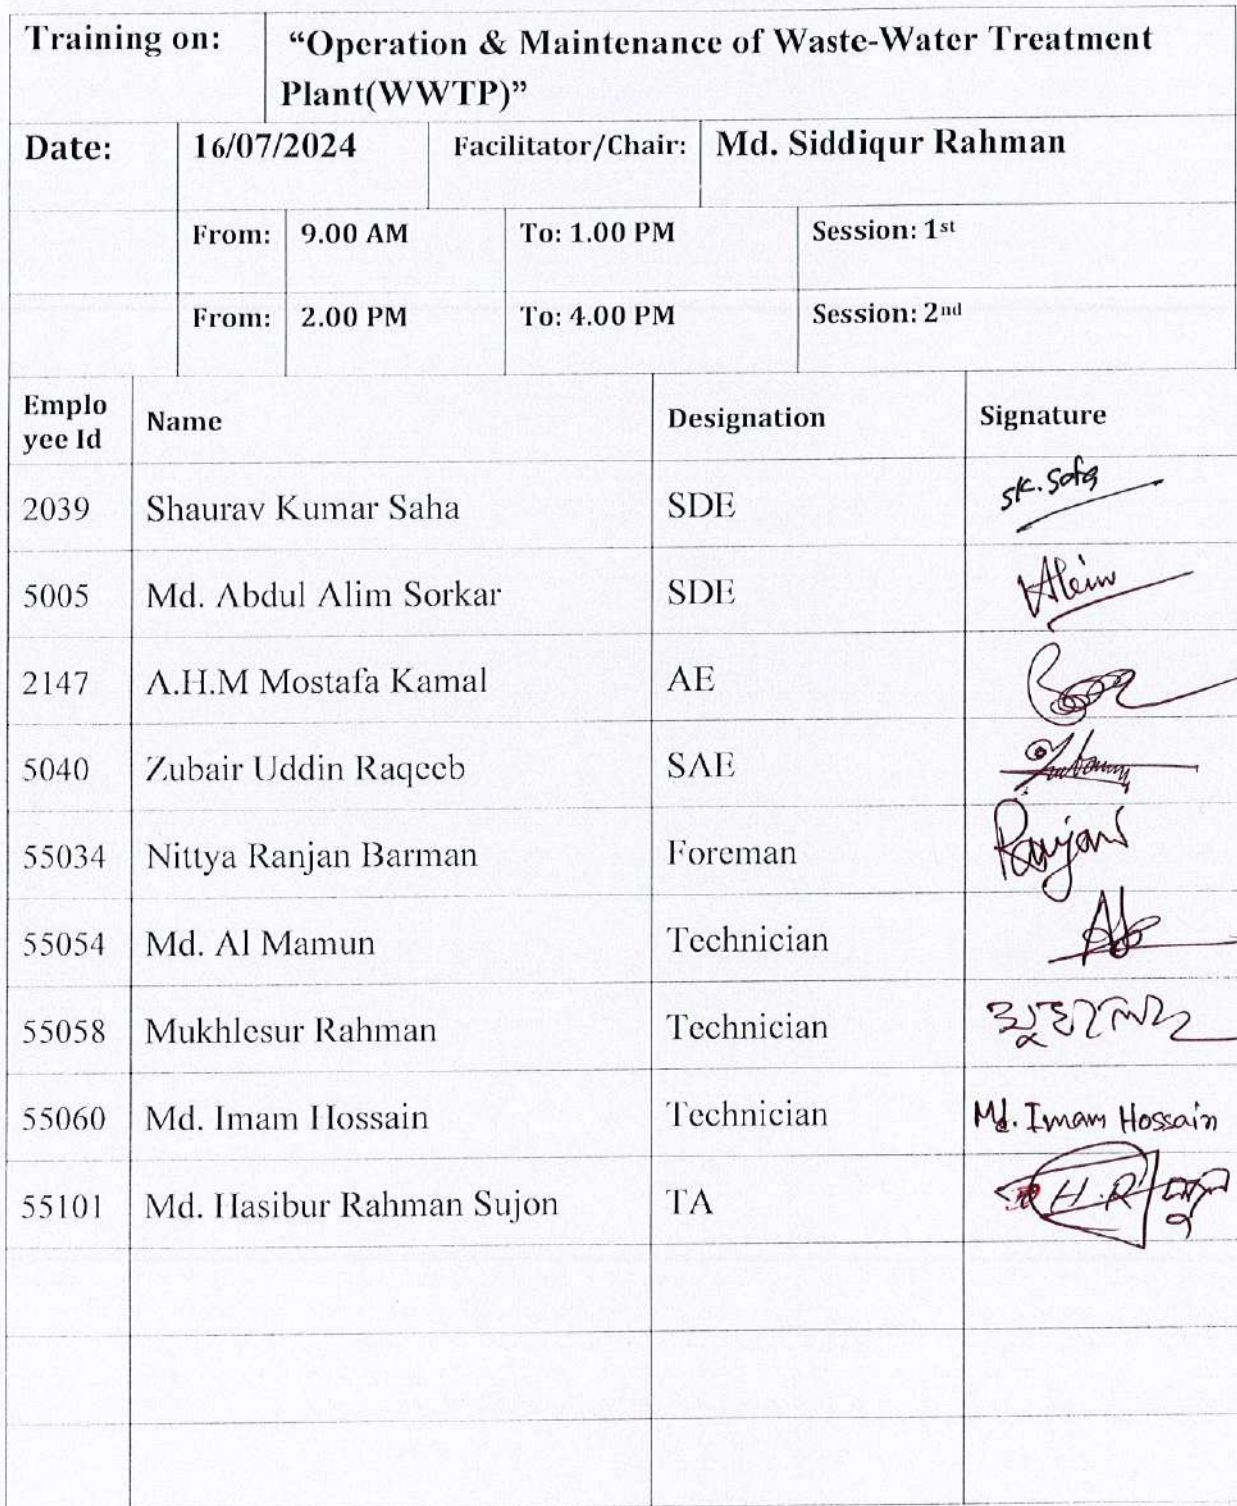 Training on: “Operation & Maintenance of Waste-Water Treatment
Plant(WWTP)”
Date: 16/07/2024 Facilitator/Chair: Md. Siddiqur Rahman
From: 9.00 AM To: 1.00 PM Session: 1st
From: 2.00 PM To: 4.00 PM Session: 2nd
Emplo
yee Id Name Designation Signature
2039 Shaurav Kumar Saha SDE
5005 Md. Abdul Alim Sorkar SDE
2147 A.H.M Mostafa Kamal AE
5040 Zubair Uddin Raqeeb SAE
55034 Nittya Ranjan Barman Foreman Ranjan
55054 Md. Al Mamun Technician
55058 Mukhlesur Rahman Technician
55060 Md. Imam Hossain Technician Md. Imam Hossain
55101 Md. Hasibur Rahman Sujon TA H.R